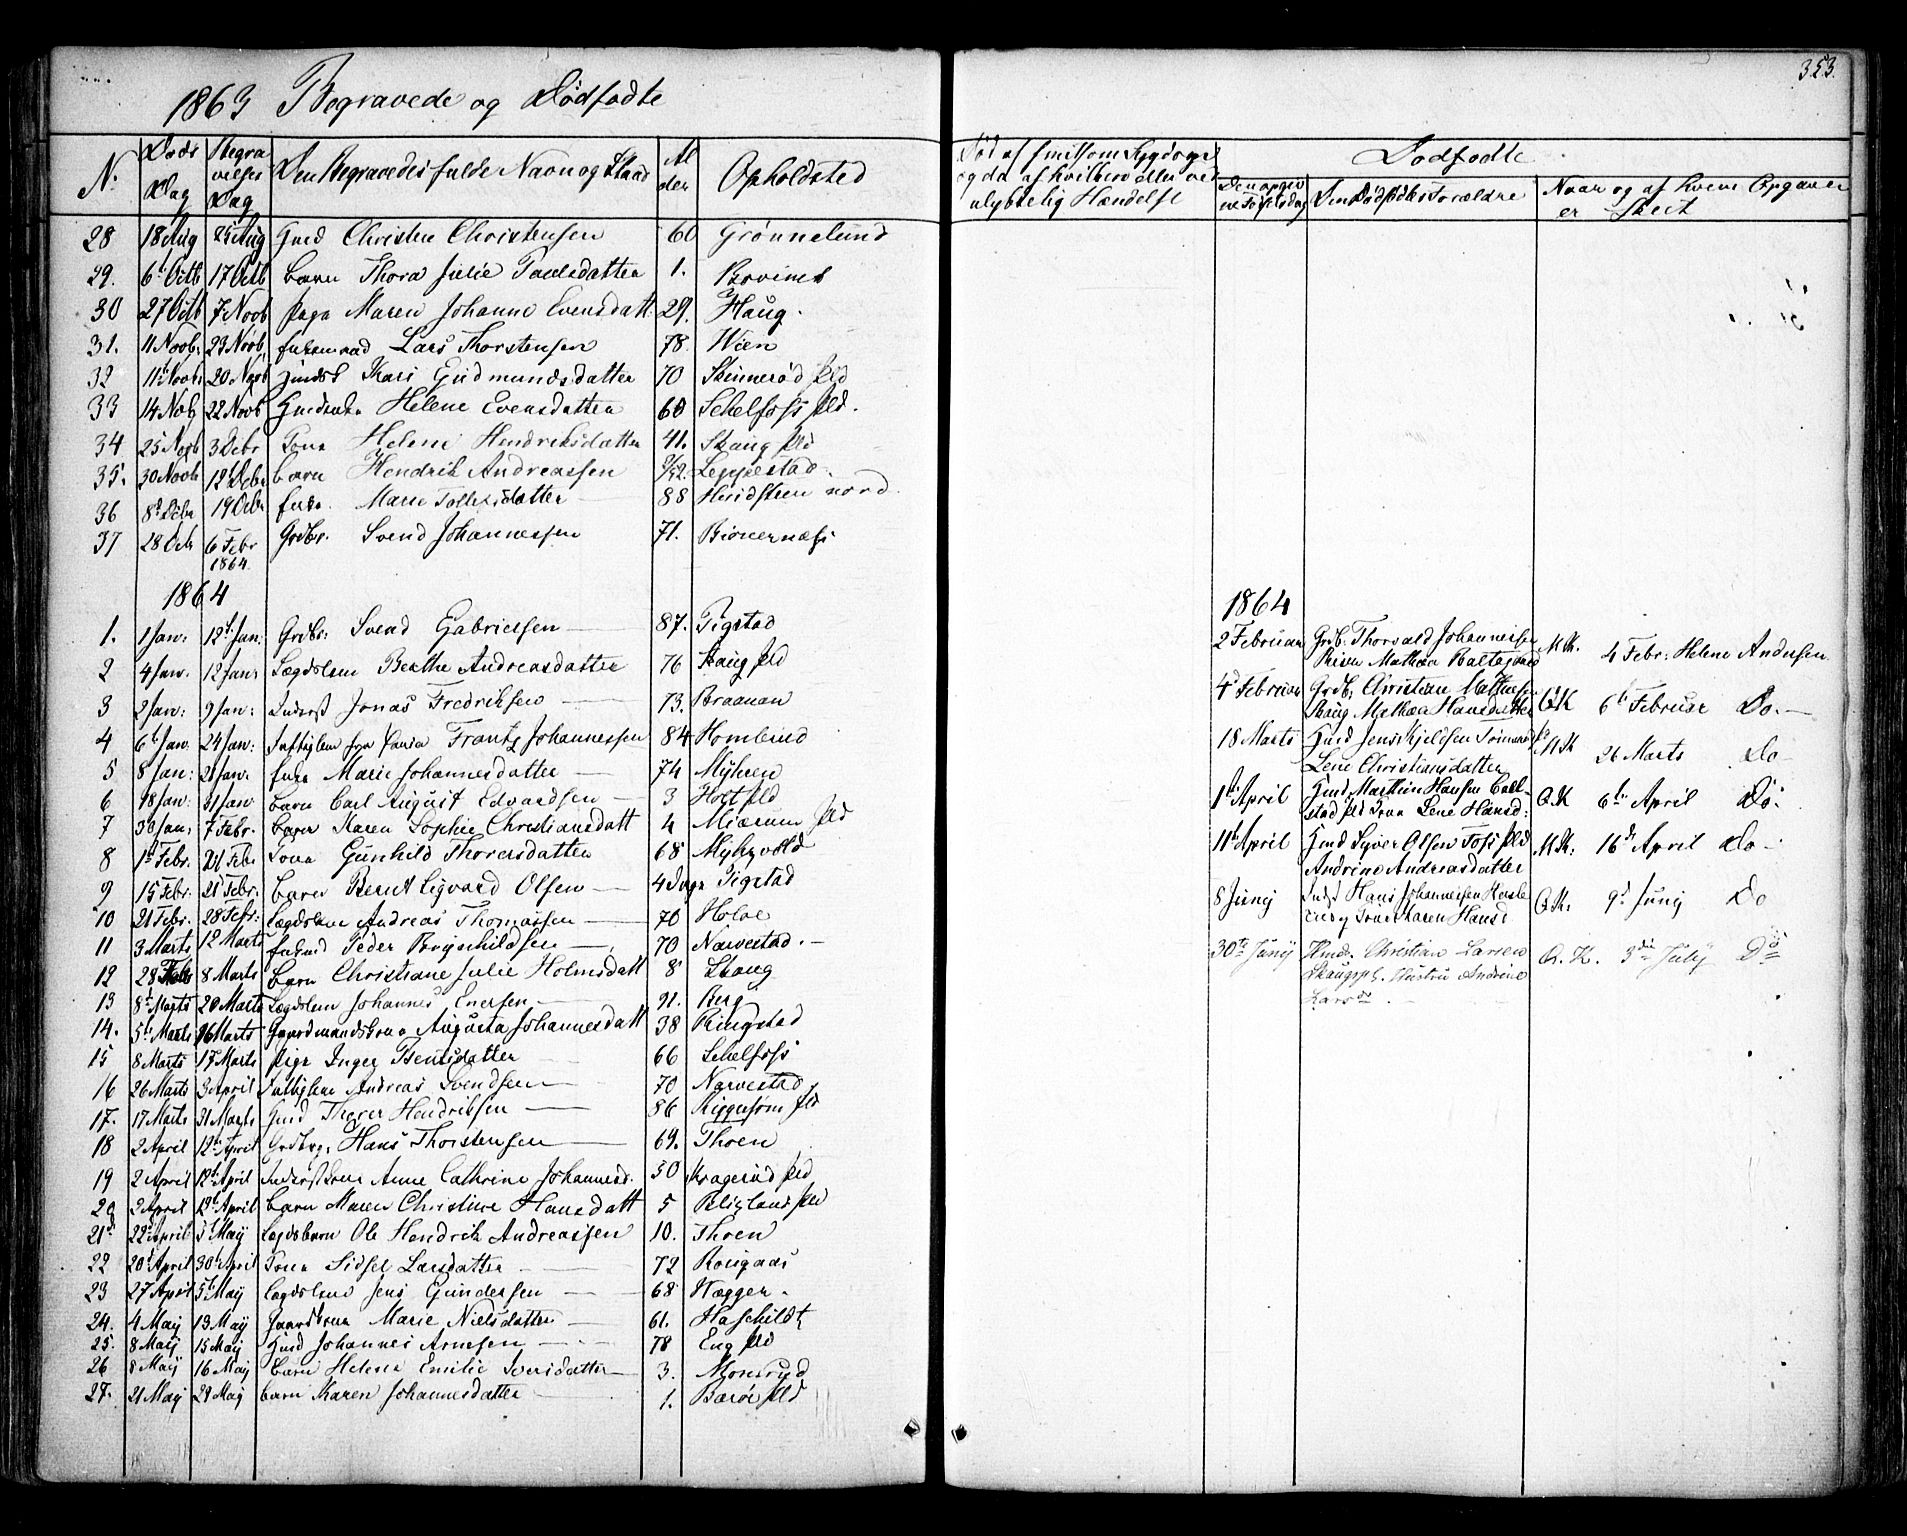 353.
1863 Begravede og Dødfødte
N. Døds Dag Begravelses Dag Den Begravedes fulde Navn og Stand Alder Opholdsted
28 18 Aug 25 Aug Gmd Christen Christensen 60 Grønnelund
29. 6t Octb 17 Octb barn Thora Julie Paulsdatter 1.
30 27 Octb 7. Novb pige Maren Johanne Evensdatt 29. Haug.
31. 11 Novb: 23 Novb. Lars Thorstensen 78. Wien
32 11t Novb: 20 Novb Kari Gudmundsdatter 70 Skinnerød pld
33 14 Nob 22 Novb Gmdenke Helene Evensdatter 60 Schelfoss pld.
34 25 Novb 3 Debr Kone Helene Hendriksdatter 41. Skaug pld
35. 30 Novb 12t Debr barn Hendrik Andreassen Leppestad
36 8d Debr 19 Debr Marie Tollefsdatter 88 nord.
37 28 Febr 1864. Grdbr. Svend Johannessen 71. Biønernæss
1864
1. 1 Jan: 12t Jan: Grdbr: Svend Gabrielsen 87. Tigstad
2 4 Jan. 12 Jan: Lægdslem Berthe Andreasdatter 76 Skaug pld
3 2 Jan: 9 Jan: Inderst Jonas Fredriksen 73. Braanan
4 6t Jan. 24 Jan: Frantz Johannessen 84 Homlund
5 8 Jan: 21 Jan. Marie Johannesdatter 74 Myhren
6 18 Jan: 31 Jan barn Carl August Edvardsen 3 Holt pld
7 30 Jan: 7 Febr. barn Karen Sophie Christiansdatt 4 Miørum pld
8 1st Febr. 21 Febr Kone Gunhild Thoresdatter 68 Myhrvold
9 15 Febr. 21 Febr. barn Bernt Sigvard Olsen 4 Dage Tigstad
10 21 Febr. 28 Febr: Lægdslem Andreas Thomassen 70 Holoe
11 3 Marts 12 Marts Peder Brynhildsen 70 Narvestad.
12 28 Feb 8 Marts barn Christiane Julie Holmsdatt 8 Skaug
13 8d Marts 20 Marts Lægdslem Johannes Enersen 91. Berg
14. 5te Marts 16 Marts Gaardmandskone Augusta Johannesdatt 38 Ringstad
15 8 Marts 17 Marts pige Inger Bentsdatter 66 Schelfoss
16 26 Marts 3 April Andreas Svendsen 70 Narvestad
17. 17 Marts 31 Marts Gmd Thorer Hendriksen 86 Riggesøm pld
18 2 April 12te April Grdbrg. Hans Thorstensen 69. Thoen
19 2 April 12te April Inderstkone Anne Cathrine Johannesd. 50 Kragerød pld
20 2 April 12te April barn Maren Christine Hansdatt 5 pld
21d 22d April 5t Maij Lægdsbarn Ole Hendrik Andreassen 10. Thoen
22 20d April 30t April Kone Sidsel Larsdatter 72 Rougaas
23 27 April 5t Maij Lægdslem Jens Gundersen 68 Hegger.
24. 4 Maij 13 Maij Gaardkone Marie Nielsdatter 61. Haschildt
25. 8 Maij 15 Maij Gmd Johannes Arnesen 78 Eng pld
26 8 Maij 16 Maij barn Helene Emilie Iversdatter 3. Monsryd
27. 21 Maij 29 Maij barn Karen Johannesdatter 1. Barøe pld
Død af smitsom Sygdom og da af hvilken eller ved ulykkelig Hændelse
Dødfødte
Den opgivne Fødselsdag Den Dødfødtes Forældre Naar og af hvem Opgaven er Skeet
1864
2 Februar Grdb. Thorvald Johannessen Mathea M.K. 4 Febr: Helene Andersen
4d Februar Grdb. Christian Mathisen Skaug Mathea Hansdatter Q.K 6te Februar Do.
18 Marts Gmd Jens Kjeldsen
Lene Christiansdatter M.K 26 Marts Do
1st April Gmd Matthias Hansen
pld Kone Lene Hansd: Q.K 6te April Do.
11te April Gmd Syver Olsen Foss pld
Andrine Andreasdatter M.K: 16de April Do
8 Junij Inds Hans Johannessen
Kone Karen Hansd Q.K. 9d Junij Do
30te Junij Hmd. Christian Larsen
Skaugspl. Hustru Andrine
Larsdr Q.K. 3die July Do